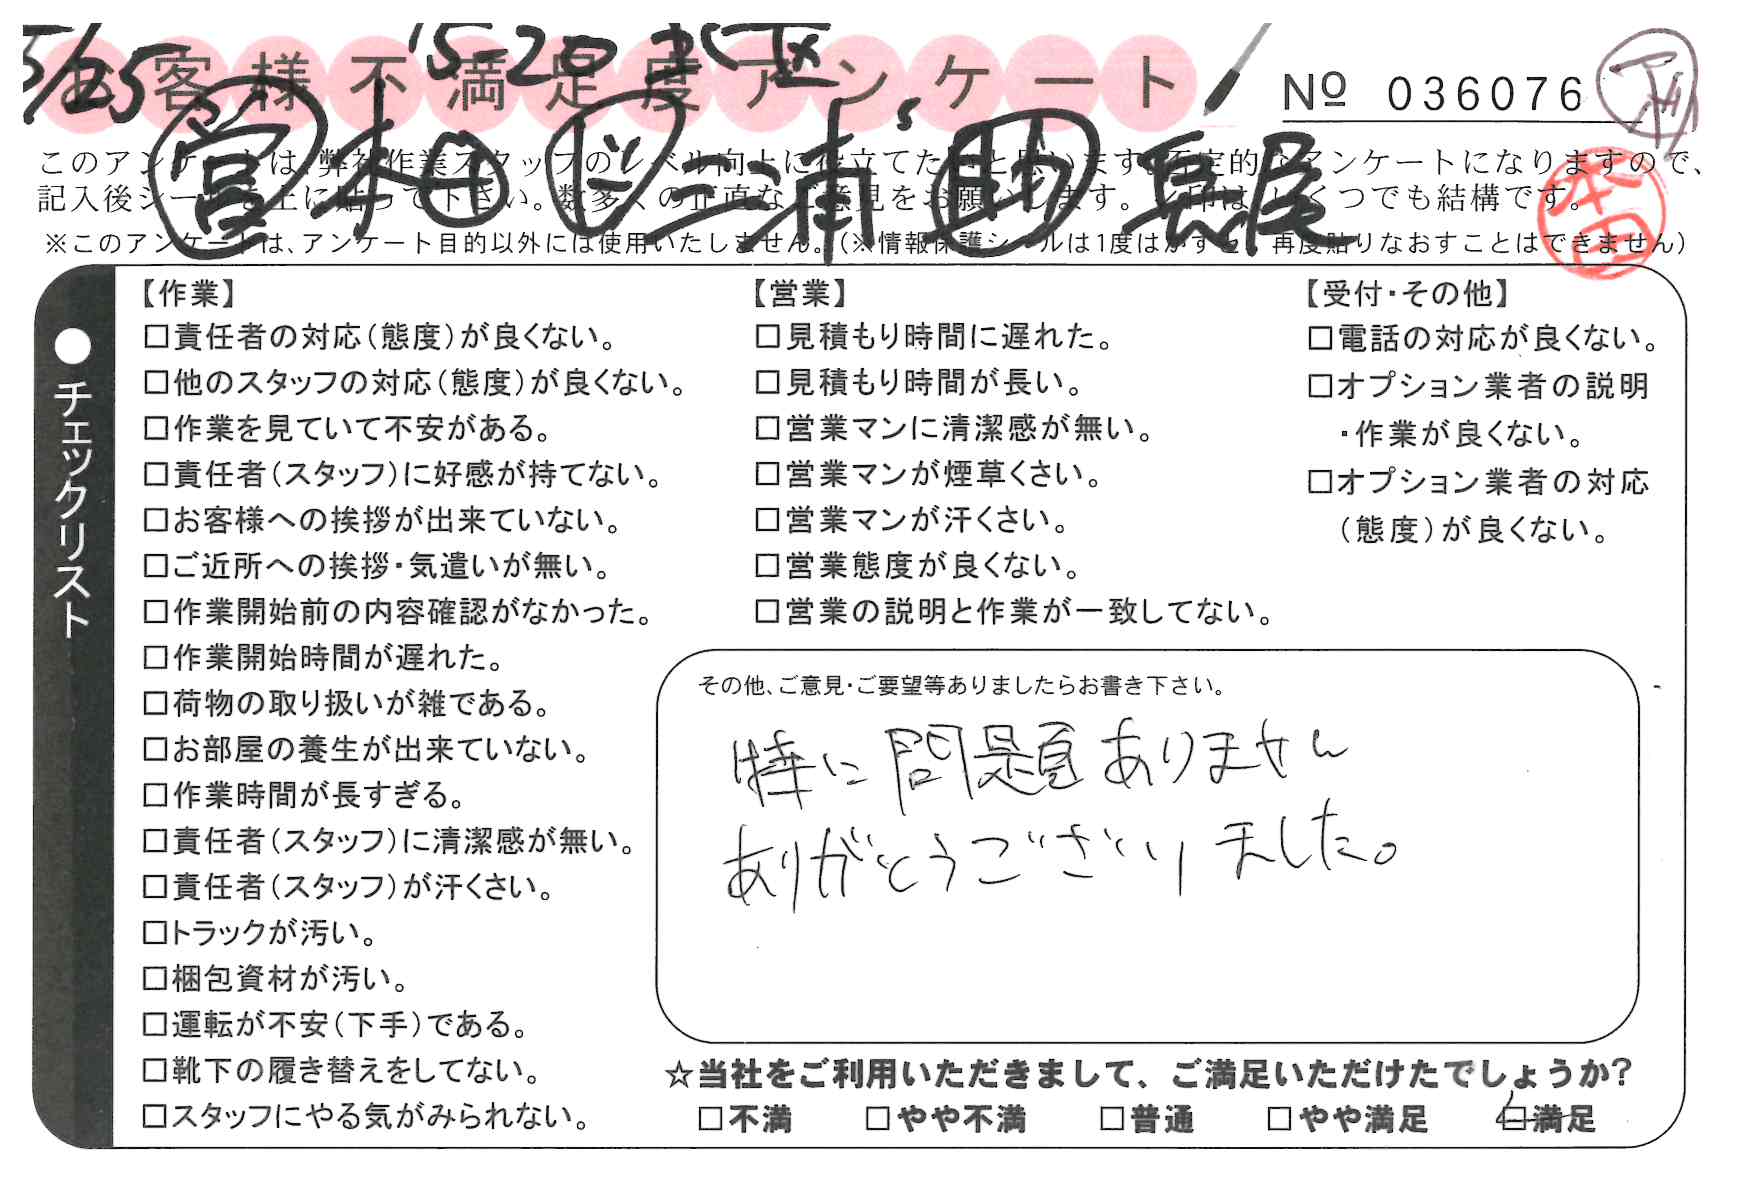 5/25 '15-20 北区
お客様不満足度アンケート
№ 036076
宮 本田 ド 三浦 助 長尾
このアンケートは、弊社作業スタッフのレベル向上に役立てたいと思います。否定的なアンケートになりますので、
記入後シールを上に貼って下さい。数多くの正直なご意見をお願いします。レ印はいくつでも結構です。
※このアンケートは、アンケート目的以外には使用いたしません。(※情報保護シールは1度はがすと、再度貼りなおすことはできません)
本田
●チェックリスト
【作業】
□責任者の対応(態度)が良くない。
□他のスタッフの対応(態度)が良くない。
□作業を見ていて不安がある。
□責任者(スタッフ)に好感が持てない。
□お客様への挨拶が出来ていない。
□ご近所への挨拶・気遣いが無い。
□作業開始前の内容確認がなかった。
□作業開始時間が遅れた。
□荷物の取り扱いが雑である。
□お部屋の養生が出来ていない。
□作業時間が長すぎる。
□責任者(スタッフ)に清潔感が無い。
□責任者(スタッフ)が汗くさい。
□トラックが汚い。
□梱包資材が汚い。
□運転が不安(下手)である。
□靴下の履き替えをしてない。
□スタッフにやる気がみられない。
【営業】
□見積もり時間に遅れた。
□見積もり時間が長い。
□営業マンに清潔感が無い。
□営業マンが煙草くさい。
□営業マンが汗くさい。
□営業態度が良くない。
□営業の説明と作業が一致してない。
【受付・その他】
□電話の対応が良くない。
□オプション業者の説明
・作業が良くない。
□オプション業者の対応
(態度)が良くない。
その他、ご意見・ご要望等ありましたらお書き下さい。
特に問題ありません
ありがとうございました。
☆当社をご利用いただきまして、ご満足いただけたでしょうか?
□不満 □やや不満 □普通 □やや満足 □満足